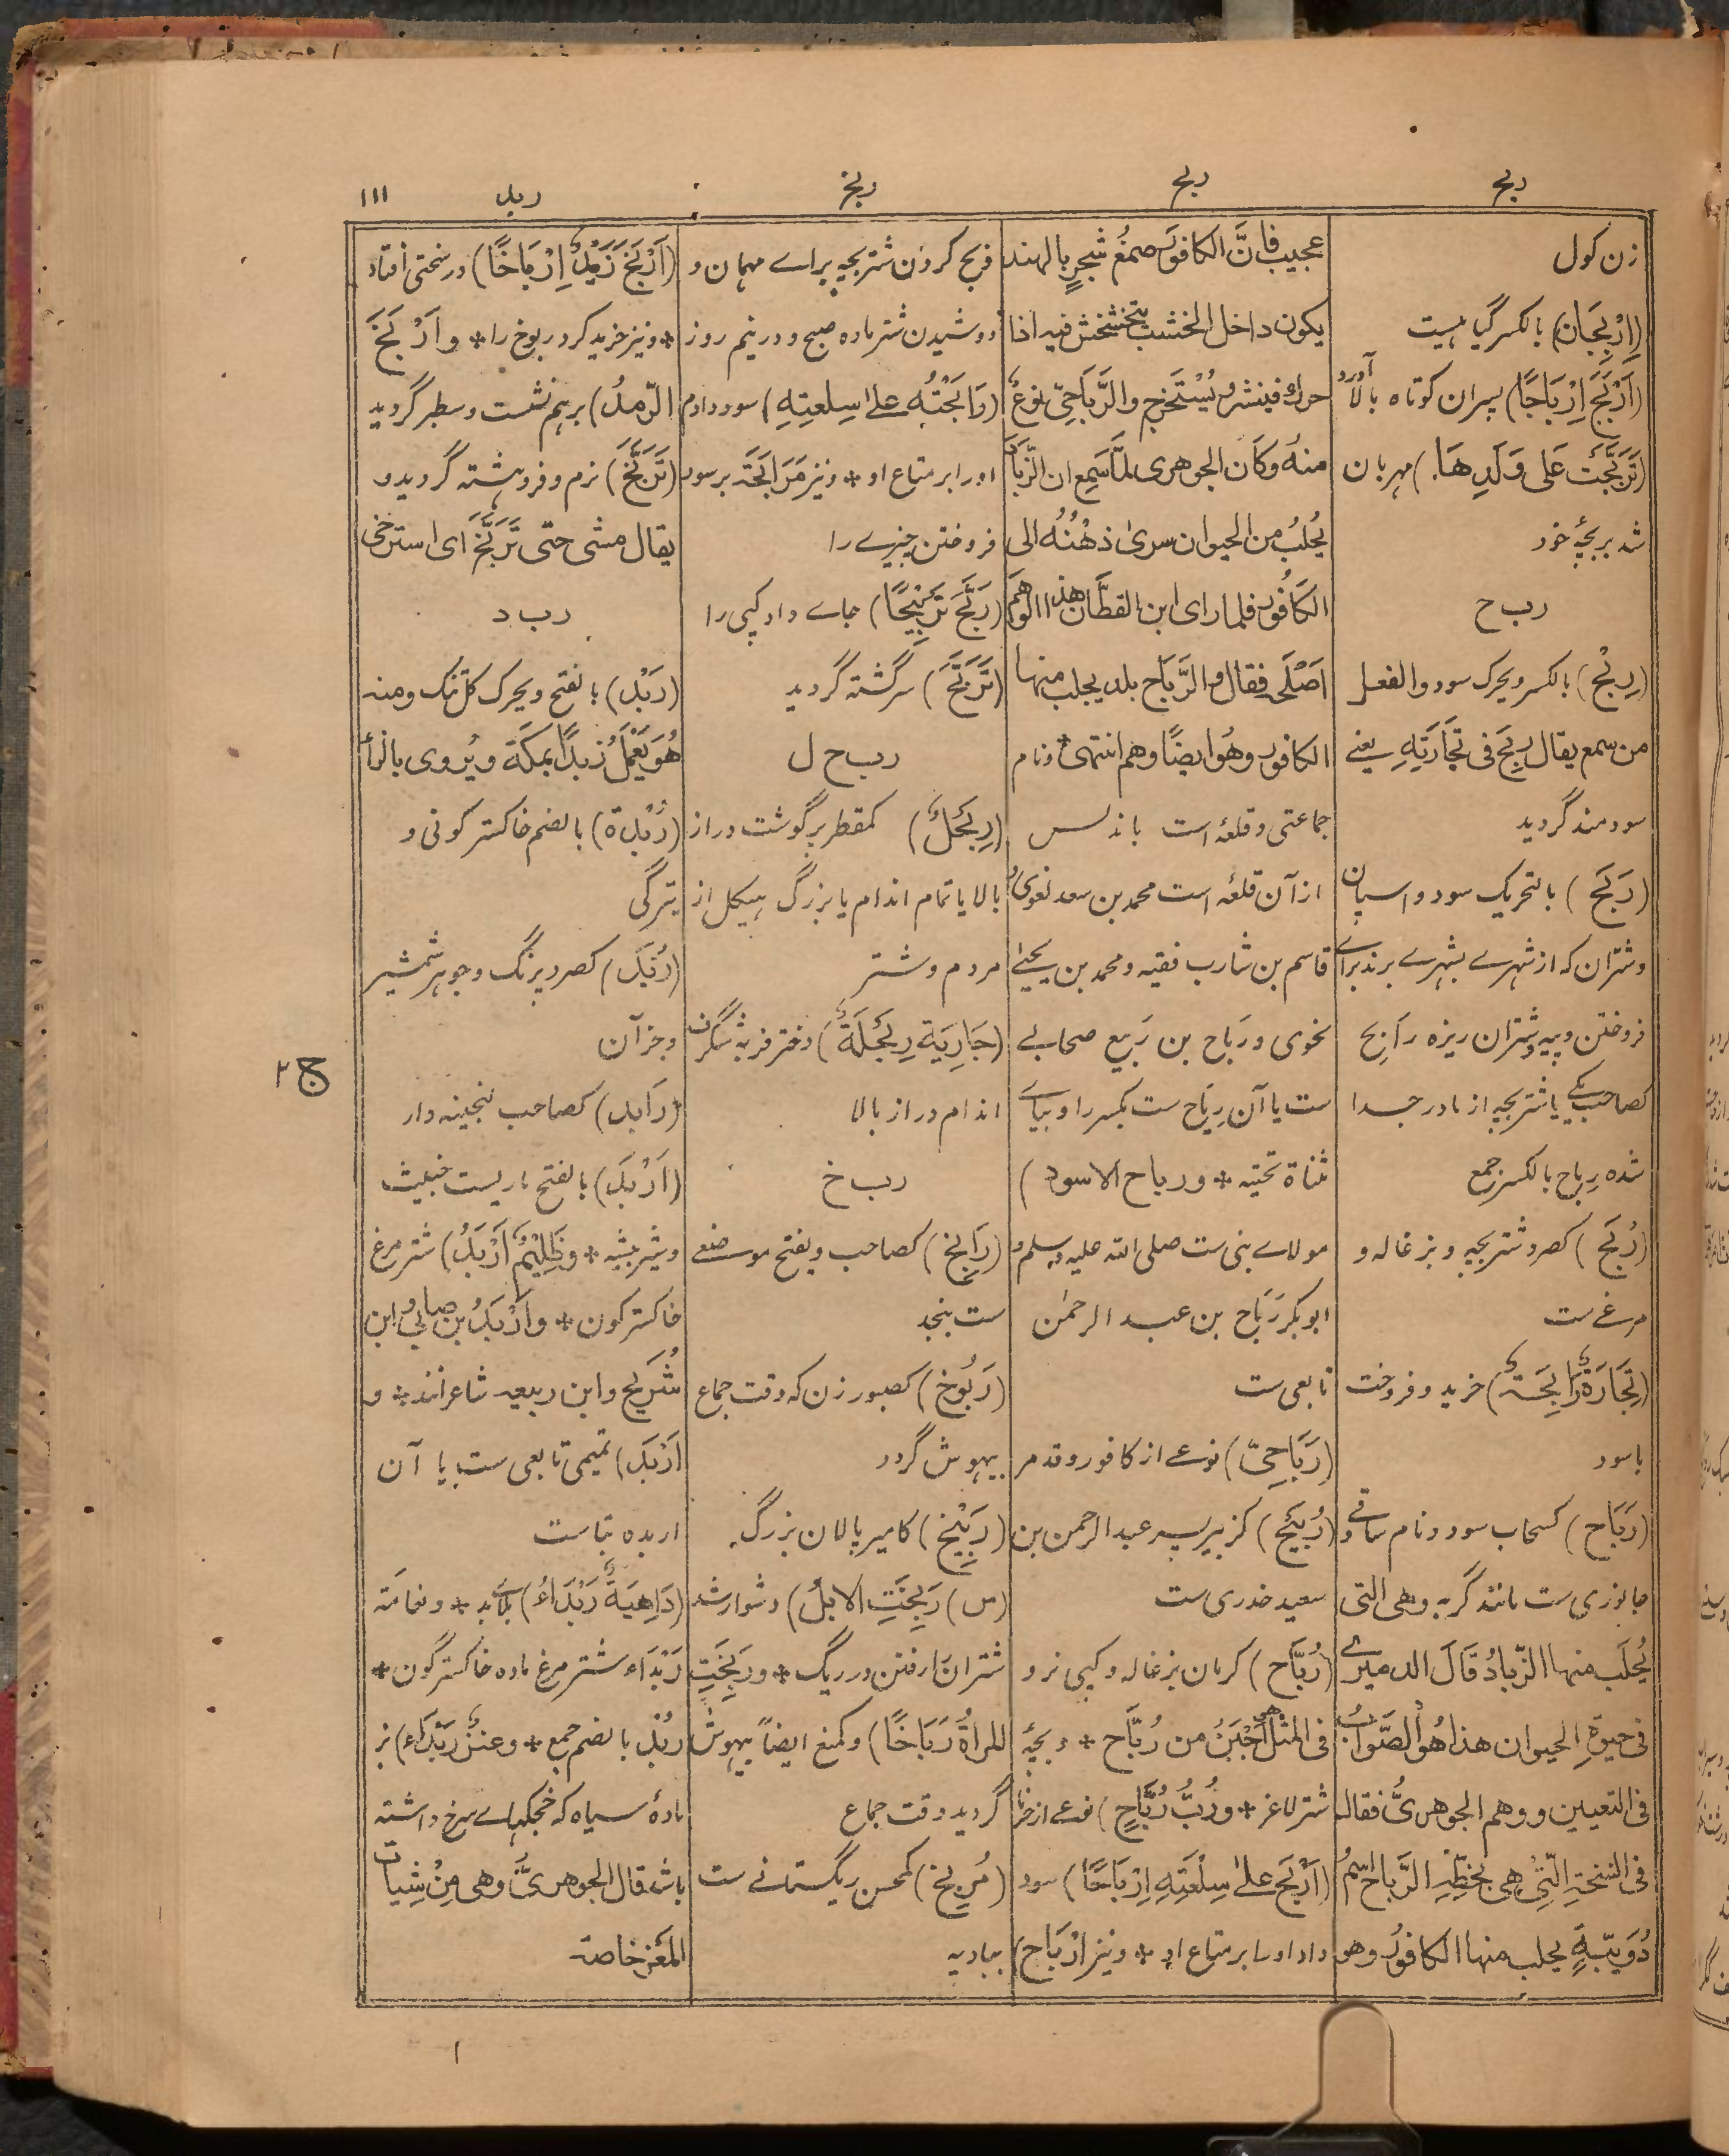 ربج
ربح
ربخ
ربد
۱۱۱
زن کول
(اِرْبِجَان) بالکسر گیاهیست
(اَرْبَجَ اِرْبَاجًا) پسران کوتاه بالا آورد
(تَرَبَّجَتْ عَلی وَلَدِهَا) مهربان
شد بر بچۀ خود
رب ح
(رِبْح) بالکسر ویحرک سود والفعل
من سمع یقال رَبِحَ فی تِجَارَتِهِ یعنے
سودمند گردید
(رَبَح) بالتحریک سود و اسپان
و شتران که از شهرے بشهرے برند براے
فروختن و پیه و شتران ریزه رَابِح
کصاحب یکے یا شتر بچه از مادر جدا
شده رِبَاح بالکسر جمع
(رُبَح) کصرد شتر بچه و بزغاله و
مرغے ست
(تِجَارَةٌ رَابِحَةٌ) خرید و فروخت
باسود
(رَبَاح) کسحاب سود و نام ساقی و
جانوری ست مانند گربه وهی التی
یُحلَب منها الزّبادُ قَالَ الدمیرے
فی حیٰوةِ الحیوان هذا هُو الصَّوابُ
فی التعیین ووهم الجوهریُّ فقال
فی النسخةِ الّتِی هِی بخطِّهِ الرَّباح اسْمُ
دُوَیبّةٍ یحلب منها الکافورُ وهو
عجیب فاِنَّ الکافورَ صمغُ شجرٍ بالهند
یکون داخل الخشب یتخشخش فیه اذا
حرك فینشر و یُسْتَخرج والرَّبَاحِیّ نوعٌ
منهُ وکَان الجوهری لمَّا سَمِع ان الزَّبَادَ
یُحلبُ من الحیوان سریٰ ذهْنُهُ الی
الکَافُور فلما رای ابن القطَّان هذا الوَهَم
اَصْلَحَه فقال والرَّبَاح بلد یجلب منها
الکافور وهُوا یضًا وهم انتهیٰ * ونام
جماعتی و قلعۀ است باندلس
از آن قلعه است محمد بن سعد لغوی و
قاسم بن شارب فقیه و محمد بن یحیے
نحوی و رَباح بن رَبیع صحابے
ست یا آن رِیَاح ست بکسر را و بیاے
مثناة تحتیه * و رباح الاسود)
مولاے بنی ست صلی الله علیه و سلم و
ابوبکر رَبَاح بن عبد الرحمٰن
تابعی ست
(رَبَاحِیّ) نوعے از کافور و قد مر
(رُبَیْح) کزبیر پسر عبد الرحمن بن
سعید خدری ست
(رُبَّاح) کرمان بزغاله و کپی نر و
فی المثل هو اَجْبَنُ من رُبَّاح * و بچۀ
شتر لاغر * و زُبُّ رُبَّاحٍ) نوعے از خرما
(اَرْبَحَ علیٰ سِلْعَتِهِ اِرْبَاحًا) سود
داد او را بر متاع او * و نیز اِرْبَاح)
ذبح کردن شتر بچه براے مهمان و
دوشیدن شتر ماده صبح و در نیم روز
(رَابَحْتُه علیٰ سِلعتِهِ) سود دادم
او را بر متاع او * و نیز مُرَابَحَة بر سود
فروختن چیزے را
(رَبَّحَ تَرْبِیْحًا) جاے داد کپی را
(تَرَبَّحَ) سرگشته گردید
رب ح ل
(رِبَحْلٌ) کمقطر پر گوشت دراز
بالا یا تمام اندام یا بزرگ هیکل از
مردم و شتر
(جَارِیَة رِبَحْلَةٌ) دختر فربه شگرف
اندام دراز بالا
رب خ
(رَابِخ) کصاحب و بفتح موضعے
ست بنجد
(رَبُوخ) کصبور زن که وقت جماع
بیهوش گردد
(رَبِیْخ) کامیر پالان بزرگ
(س) رَبِخَتِ الابلُ) دشوار شد
شتران را رفتن در ریگ * و رَبِخَتِ
المراةُ رَبَاخًا) و کمنع ایضاً بیهوش
گردید وقت جماع
(مُرِبِخ) کمحسن ریگستانے ست
ببادیه
(اَرْبَخَ زَیْدٌ اِرْبَاخًا) در سختی افتاد
* و نیز خرید کرد ربوخ را * و اَرْبَخَ
الرّملُ) برهم نشست و سطبر گردید
(تَرَبَّخَ) نرم و فروهشته گردید و
یقال مشی حتّی تَرَبَّخَ ای استرخی
رب د
(رَبْد) بالفتح ویحرک گل تنک ومنه
هُوَ یَعْمَلُ رَبدًا بمکَة ویُروی بالزأ
(رُبْدة) بالضم خاکستر گونی و
تیرگی
(رُبَد) کصرد پرنگ و جوهر شمشیر
و جز آن
(رَابِد) کصاحب گنجینه دار
(اَرْبَد) بالفتح ماریست خبیث
و شیر بیشه * وظَلِیْمٌ اَرْبَدُ) شتر مرغ
خاکستر گون * و اَرْبَدُ بن ضابی و ابن
شُرَیح و ابن ربیعه شاعرانند * و
اَرْبَد) تمیمی تابعی ست یا آن
اربده بتا ست
(دَاهِیَةٌ رَبْدَاءُ) بلاے بد * و نعامة
رَبْدَاء شتر مرغ ماده خاکستر گون *
رُبْد بالضم جمع * و عنزٌ رَبْدَاء) بز
مادۀ سیاه که خجکهاے سرخ داشته
باشد قال الجوهریُّ وهی مِنْ شِیات
المَعْز خاصة
ج ۲
۱